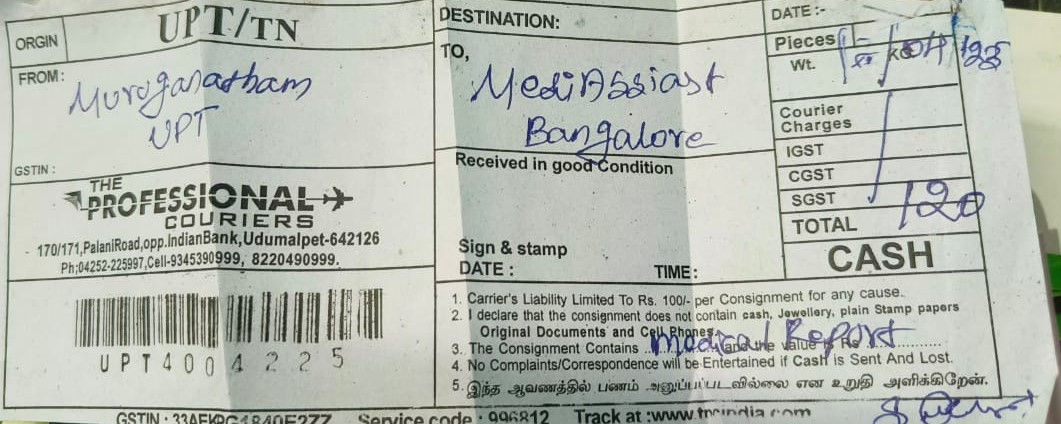 ORGIN
UPT/TN
FROM:
Muroganatham
UPT
GSTIN :
THE
PROFESSIONAL
COURIERS
170/171,PalaniRoad,opp.IndianBank,Udumalpet-642126
Ph;04252-225997,Cell-9345390999, 8220490999.
UPT4004225
DESTINATION:
TO,
MediASSiast
Bangalore
Received in good Condition
Sign & stamp
DATE : TIME:
DATE :-
Pieces
Wt.
Courier
Charges
IGST
CGST
SGST
TOTAL
120
CASH
1. Carrier's Liability Limited To Rs. 100/- per Consignment for any cause.
2. I declare that the consignment does not contain cash, Jewollory, plain Stamp papers
Original Documents and Cell Phones
3. The Consignment Contains ..Medical Report and the value is Rs ............
4. No Complaints/Correspondence will be Entertained if Cash is Sent And Lost.
5. இந்த ஆவணத்தில் பணம் அனுப்பப்படவில்லை என உறுதி அளிக்கிறேன்.
GSTIN : Service code : 996812 Track at :www.tpcindia.com